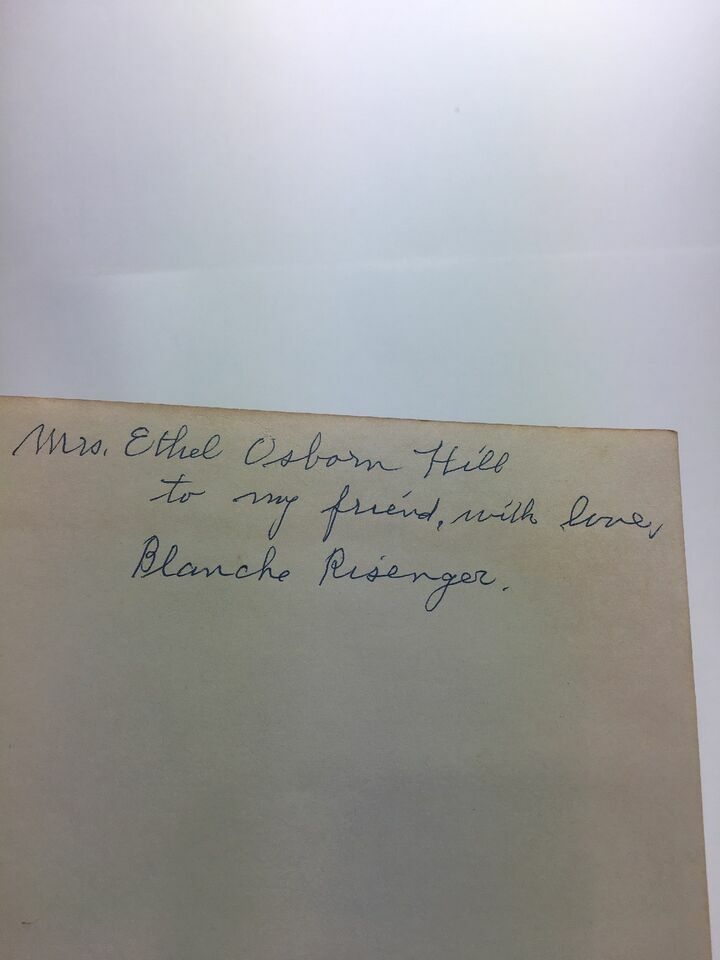 Mrs. Ethel Osborn Hill
to my friend, with love,
Blanche Risenger.